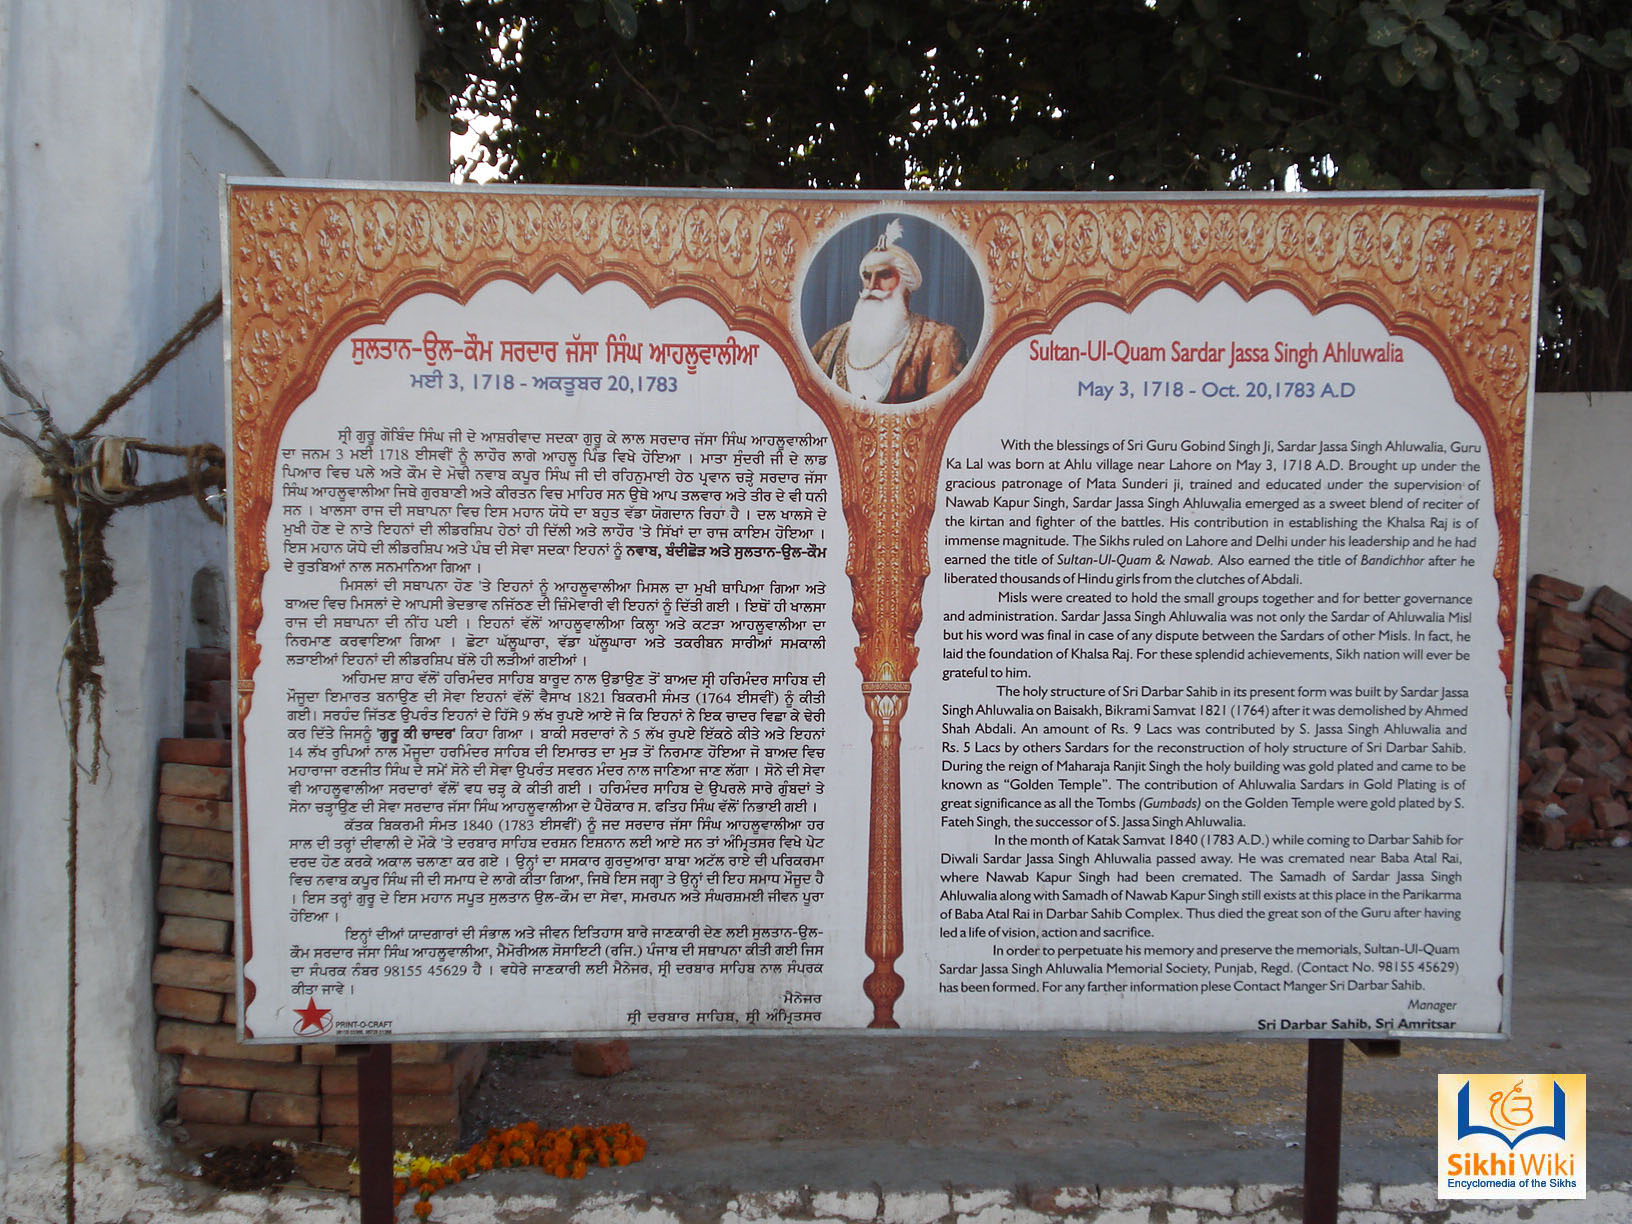 ਸੁਲਤਾਨ-ਉਲ-ਕੌਮ ਸਰਦਾਰ ਜੱਸਾ ਸਿੰਘ ਆਹਲੂਵਾਲੀਆ
ਮਈ 3, 1718 - ਅਕਤੂਬਰ 20,1783
ਸ੍ਰੀ ਗੁਰੂ ਗੋਬਿੰਦ ਸਿੰਘ ਜੀ ਦੇ ਆਸ਼ਰੀਵਾਦ ਸਦਕਾ ਗੁਰੂ ਕੇ ਲਾਲ ਸਰਦਾਰ ਜੱਸਾ ਸਿੰਘ ਆਹਲੂਵਾਲੀਆ
ਦਾ ਜਨਮ 3 ਮਈ 1718 ਈਸਵੀਂ ਨੂੰ ਲਾਹੌਰ ਲਾਗੇ ਆਹਲੂ ਪਿੰਡ ਵਿਖੇ ਹੋਇਆ । ਮਾਤਾ ਸੁੰਦਰੀ ਜੀ ਦੇ ਲਾਡ
ਪਿਆਰ ਵਿਚ ਪਲੇ ਅਤੇ ਕੌਮ ਦੇ ਮੋਢੀ ਨਵਾਬ ਕਪੂਰ ਸਿੰਘ ਜੀ ਦੀ ਰਹਿਨੁਮਾਈ ਹੇਠ ਪ੍ਰਵਾਨ ਚੜ੍ਹੇ ਸਰਦਾਰ ਜੱਸਾ
ਸਿੰਘ ਆਹਲੂਵਾਲੀਆ ਜਿਥੇ ਗੁਰਬਾਣੀ ਅਤੇ ਕੀਰਤਨ ਵਿਚ ਮਾਹਿਰ ਸਨ ਉਥੇ ਆਪ ਤਲਵਾਰ ਅਤੇ ਤੀਰ ਦੇ ਵੀ ਧਨੀ
ਸਨ । ਖਾਲਸਾ ਰਾਜ ਦੀ ਸਥਾਪਨਾ ਵਿਚ ਇਸ ਮਹਾਨ ਯੋਧੇ ਦਾ ਬਹੁਤ ਵੱਡਾ ਯੋਗਦਾਨ ਰਿਹਾ ਹੈ । ਦਲ ਖਾਲਸੇ ਦੇ
ਮੁਖੀ ਹੋਣ ਦੇ ਨਾਤੇ ਇਹਨਾਂ ਦੀ ਲੀਡਰਸ਼ਿਪ ਹੇਠਾਂ ਹੀ ਦਿੱਲੀ ਅਤੇ ਲਾਹੌਰ 'ਤੇ ਸਿੱਖਾਂ ਦਾ ਰਾਜ ਕਾਇਮ ਹੋਇਆ ।
ਇਸ ਮਹਾਨ ਯੋਧੇ ਦੀ ਲੀਡਰਸ਼ਿਪ ਅਤੇ ਪੰਥ ਦੀ ਸੇਵਾ ਸਦਕਾ ਇਹਨਾਂ ਨੂੰ ਨਵਾਬ, ਬੰਦੀਛੋੜ ਅਤੇ ਸੁਲਤਾਨ-ਉਲ-ਕੌਮ
ਦੇ ਰੁਤਬਿਆਂ ਨਾਲ ਸਨਮਾਨਿਆ ਗਿਆ ।
ਮਿਸਲਾਂ ਦੀ ਸਥਾਪਨਾ ਹੋਣ 'ਤੇ ਇਹਨਾਂ ਨੂੰ ਆਹਲੂਵਾਲੀਆ ਮਿਸਲ ਦਾ ਮੁਖੀ ਥਾਪਿਆ ਗਿਆ ਅਤੇ
ਬਾਅਦ ਵਿਚ ਮਿਸਲਾਂ ਦੇ ਆਪਸੀ ਭੇਦਭਾਵ ਨਜਿੱਠਣ ਦੀ ਜ਼ਿੰਮੇਵਾਰੀ ਵੀ ਇਹਨਾਂ ਨੂੰ ਦਿੱਤੀ ਗਈ । ਇਥੋਂ ਹੀ ਖਾਲਸਾ
ਰਾਜ ਦੀ ਸਥਾਪਨਾ ਦੀ ਨੀਂਹ ਪਈ । ਇਹਨਾਂ ਵੱਲੋਂ ਆਹਲੂਵਾਲੀਆ ਕਿਲ੍ਹਾ ਅਤੇ ਕਟੜਾ ਆਹਲੂਵਾਲੀਆ ਦਾ
ਨਿਰਮਾਣ ਕਰਵਾਇਆ ਗਿਆ । ਛੋਟਾ ਘੱਲੂਘਾਰਾ, ਵੱਡਾ ਘੱਲੂਘਾਰਾ ਅਤੇ ਤਕਰੀਬਨ ਸਾਰੀਆਂ ਸਮਕਾਲੀ
ਲੜਾਈਆਂ ਇਹਨਾਂ ਦੀ ਲੀਡਰਸ਼ਿਪ ਥੱਲੇ ਹੀ ਲੜੀਆਂ ਗਈਆਂ ।
ਅਹਿਮਦ ਸ਼ਾਹ ਵੱਲੋਂ ਹਰਿਮੰਦਰ ਸਾਹਿਬ ਬਾਰੂਦ ਨਾਲ ਉਡਾਉਣ ਤੋਂ ਬਾਅਦ ਸ੍ਰੀ ਹਰਿਮੰਦਰ ਸਾਹਿਬ ਦੀ
ਮੌਜੂਦਾ ਇਮਾਰਤ ਬਨਾਉਣ ਦੀ ਸੇਵਾ ਇਹਨਾਂ ਵੱਲੋਂ ਵੈਸਾਖ 1821 ਬਿਕਰਮੀ ਸੰਮਤ (1764 ਈਸਵੀਂ) ਨੂੰ ਕੀਤੀ
ਗਈ। ਸਰਹੰਦ ਜਿੱਤਣ ਉਪਰੰਤ ਇਹਨਾਂ ਦੇ ਹਿੱਸੇ 9 ਲੱਖ ਰੁਪਏ ਆਏ ਜੋ ਕਿ ਇਹਨਾਂ ਨੇ ਇਕ ਚਾਦਰ ਵਿਛਾ ਕੇ ਢੇਰੀ
ਕਰ ਦਿੱਤੇ ਜਿਸਨੂੰ 'ਗੁਰੂ ਕੀ ਚਾਦਰ' ਕਿਹਾ ਗਿਆ । ਬਾਕੀ ਸਰਦਾਰਾਂ ਨੇ 5 ਲੱਖ ਰੁਪਏ ਇੱਕਠੇ ਕੀਤੇ ਅਤੇ ਇਹਨਾਂ
14 ਲੱਖ ਰੁਪਿਆਂ ਨਾਲ ਮੌਜੂਦਾ ਹਰਮਿੰਦਰ ਸਾਹਿਬ ਦੀ ਇਮਾਰਤ ਦਾ ਮੁੜ ਤੋਂ ਨਿਰਮਾਣ ਹੋਇਆ ਜੋ ਬਾਅਦ ਵਿਚ
ਮਹਾਰਾਜਾ ਰਣਜੀਤ ਸਿੰਘ ਦੇ ਸਮੇਂ ਸੋਨੇ ਦੀ ਸੇਵਾ ਉਪਰੰਤ ਸਵਰਨ ਮੰਦਰ ਨਾਲ ਜਾਣਿਆ ਜਾਣ ਲੱਗਾ । ਸੋਨੇ ਦੀ ਸੇਵਾ
ਵੀ ਆਹਲੂਵਾਲੀਆ ਸਰਦਾਰਾਂ ਵੱਲੋਂ ਵਧ ਚੜ੍ਹ ਕੇ ਕੀਤੀ ਗਈ । ਹਰਿਮੰਦਰ ਸਾਹਿਬ ਦੇ ਉਪਰਲੇ ਸਾਰੇ ਗੁੰਬਦਾਂ ਤੇ
ਸੋਨਾ ਚੜ੍ਹਾਉਣ ਦੀ ਸੇਵਾ ਸਰਦਾਰ ਜੱਸਾ ਸਿੰਘ ਆਹਲੂਵਾਲੀਆ ਦੇ ਪੈਰੋਕਾਰ ਸ. ਫਤਿਹ ਸਿੰਘ ਵੱਲੋਂ ਨਿਭਾਈ ਗਈ ।
ਕੱਤਕ ਬਿਕਰਮੀ ਸੰਮਤ 1840 (1783 ਈਸਵੀਂ) ਨੂੰ ਜਦ ਸਰਦਾਰ ਜੱਸਾ ਸਿੰਘ ਆਹਲੂਵਾਲੀਆ ਹਰ
ਸਾਲ ਦੀ ਤਰ੍ਹਾਂ ਦੀਵਾਲੀ ਦੇ ਮੌਕੇ 'ਤੇ ਦਰਬਾਰ ਸਾਹਿਬ ਦਰਸ਼ਨ ਇਸ਼ਨਾਨ ਲਈ ਆਏ ਸਨ ਤਾਂ ਅੰਮ੍ਰਿਤਸਰ ਵਿਖੇ ਪੇਟ
ਦਰਦ ਹੋਣ ਕਰਕੇ ਅਕਾਲ ਚਲਾਣਾ ਕਰ ਗਏ । ਉਨ੍ਹਾਂ ਦਾ ਸਸਕਾਰ ਗੁਰਦੁਆਰਾ ਬਾਬਾ ਅਟੱਲ ਰਾਏ ਦੀ ਪਰਿਕਰਮਾ
ਵਿਚ ਨਵਾਬ ਕਪੂਰ ਸਿੰਘ ਜੀ ਦੀ ਸਮਾਧ ਦੇ ਲਾਗੇ ਕੀਤਾ ਗਿਆ, ਜਿਥੇ ਇਸ ਜਗ੍ਹਾ ਤੇ ਉਨ੍ਹਾਂ ਦੀ ਇਹ ਸਮਾਧ ਮੌਜੂਦ ਹੈ
। ਇਸ ਤਰ੍ਹਾਂ ਗੁਰੂ ਦੇ ਇਸ ਮਹਾਨ ਸਪੂਤ ਸੁਲਤਾਨ ਉਲ-ਕੌਮ ਦਾ ਸੇਵਾ, ਸਮਰਪਨ ਅਤੇ ਸੰਘਰਸ਼ਮਈ ਜੀਵਨ ਪੂਰਾ
ਹੋਇਆ ।
ਇਨ੍ਹਾਂ ਦੀਆਂ ਯਾਦਗਾਰਾਂ ਦੀ ਸੰਭਾਲ ਅਤੇ ਜੀਵਨ ਇਤਿਹਾਸ ਬਾਰੇ ਜਾਣਕਾਰੀ ਦੇਣ ਲਈ ਸੁਲਤਾਨ-ਉਲ-
ਕੌਮ ਸਰਦਾਰ ਜੱਸਾ ਸਿੰਘ ਆਹਲੂਵਾਲੀਆ, ਮੈਮੋਰੀਅਲ ਸੋਸਾਇਟੀ (ਰਜਿ.) ਪੰਜਾਬ ਦੀ ਸਥਾਪਨਾ ਕੀਤੀ ਗਈ ਜਿਸ
ਦਾ ਸੰਪਰਕ ਨੰਬਰ 98155 45629 ਹੈ । ਵਧੇਰੇ ਜਾਣਕਾਰੀ ਲਈ ਮੈਨੇਜਰ, ਸ੍ਰੀ ਦਰਬਾਰ ਸਾਹਿਬ ਨਾਲ ਸੰਪਰਕ
ਕੀਤਾ ਜਾਵੇ ।
ਮੈਨੇਜਰ
ਸ੍ਰੀ ਦਰਬਾਰ ਸਾਹਿਬ, ਸ੍ਰੀ ਅੰਮ੍ਰਿਤਸਰ
PRINT-O-CRAFT
Sultan-Ul-Quam Sardar Jassa Singh Ahluwalia
May 3, 1718 - Oct. 20,1783 A.D
With the blessings of Sri Guru Gobind Singh Ji, Sardar Jassa Singh Ahluwalia, Guru
Ka Lal was born at Ahlu village near Lahore on May 3, 1718 A.D. Brought up under the
gracious patronage of Mata Sunderi ji, trained and educated under the supervision of
Nawab Kapur Singh, Sardar Jassa Singh Ahluwalia emerged as a sweet blend of reciter of
the kirtan and fighter of the battles. His contribution in establishing the Khalsa Raj is of
immense magnitude. The Sikhs ruled on Lahore and Delhi under his leadership and he had
earned the title of Sultan-Ul-Quam & Nawab. Also earned the title of Bandichhor after he
liberated thousands of Hindu girls from the clutches of Abdali.
Misls were created to hold the small groups together and for better governance
and administration. Sardar Jassa Singh Ahluwalia was not only the Sardar of Ahluwalia Misl
but his word was final in case of any dispute between the Sardars of other Misls. In fact, he
laid the foundation of Khalsa Raj. For these splendid achievements, Sikh nation will ever be
grateful to him.
The holy structure of Sri Darbar Sahib in its present form was built by Sardar Jassa
Singh Ahluwalia on Baisakh, Bikrami Samvat 1821 (1764) after it was demolished by Ahmed
Shah Abdali. An amount of Rs. 9 Lacs was contributed by S. Jassa Singh Ahluwalia and
Rs. 5 Lacs by others Sardars for the reconstruction of holy structure of Sri Darbar Sahib.
During the reign of Maharaja Ranjit Singh the holy building was gold plated and came to be
known as “Golden Temple”. The contribution of Ahluwalia Sardars in Gold Plating is of
great significance as all the Tombs (Gumbads) on the Golden Temple were gold plated by S.
Fateh Singh, the successor of S. Jassa Singh Ahluwalia.
In the month of Katak Samvat 1840 (1783 A.D.) while coming to Darbar Sahib for
Diwali Sardar Jassa Singh Ahluwalia passed away. He was cremated near Baba Atal Rai,
where Nawab Kapur Singh had been cremated. The Samadh of Sardar Jassa Singh
Ahluwalia along with Samadh of Nawab Kapur Singh still exists at this place in the Parikarma
of Baba Atal Rai in Darbar Sahib Complex. Thus died the great son of the Guru after having
led a life of vision, action and sacrifice.
In order to perpetuate his memory and preserve the memorials, Sultan-Ul-Quam
Sardar Jassa Singh Ahluwalia Memorial Society, Punjab, Regd. (Contact No. 98155 45629)
has been formed. For any farther information plese Contact Manger Sri Darbar Sahib.
Manager
Sri Darbar Sahib, Sri Amritsar
ੴ
SikhiWiki
Encyclomedia of the Sikhs